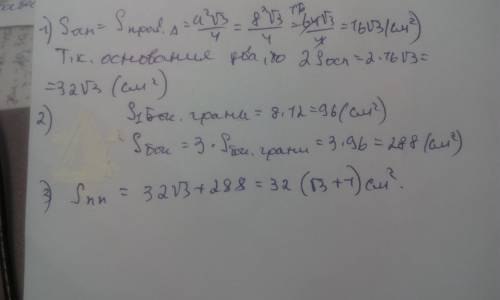 1) Sосн = Sправ.Δ = a²√3/4 = 8²√3/4 = 64√3/4 = 16√3 (см²)
Т.к. основания два, то 2Sосн = 2·16√3 =
= 32√3 (см²)
2) S1бок. грани = 8·12 = 96 (см²)
Sбок = 3·Sбок. грани = 3·96 = 288 (см²)
3) Sпп = 32√3 + 288 = 32 (√3 + 1) см².